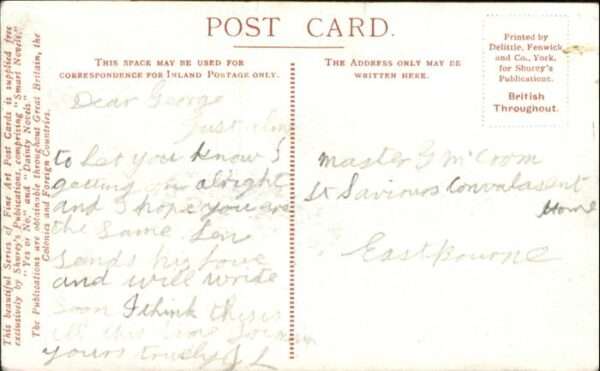 POST CARD.
THIS SPACE MAY BE USED FOR
CORRESPONDENCE FOR INLAND POSTAGE ONLY.
THE ADDRESS ONLY MAY BE
WRITTEN HERE.
Printed by
Delittle, Fenwick
and Co., York,
for Shurey's
Publications.
British
Throughout.
This beautiful Series of Fine Art Post Cards is supplied free
exclusively by Shurey's Publications, comprising "Smart Novels,"
"Yes or No," and "Dainty Novels."
The Publications are obtainable throughout Great Britain, the
Colonies and Foreign Countries.
Dear George
Just
to let you know I
getting on alright
and I hope you are
the same Len
sends his love
and will write
soon I think this is
all this time
yours truely
Master G McCoom
St Saviours Convalasent
Home
Eastbourne